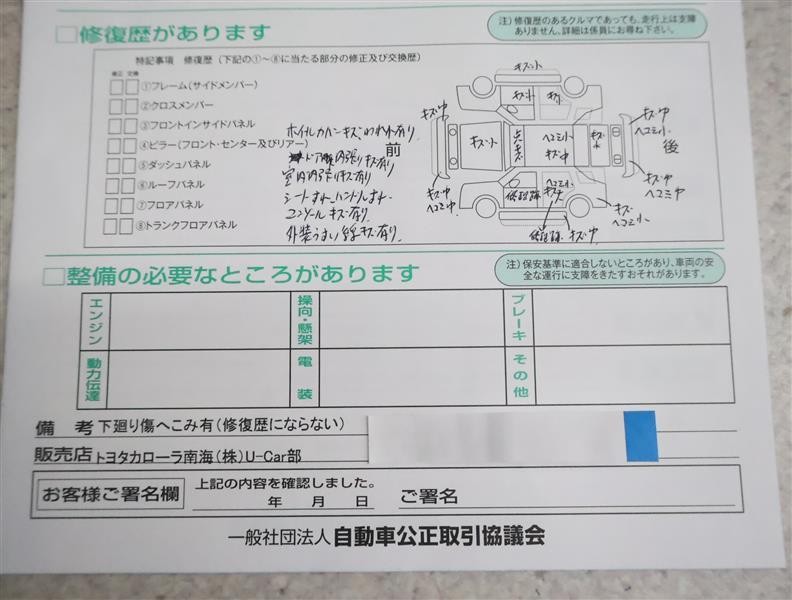 □修復歴があります
注）修復歴のあるクルマであっても、走行上は支障
ありません。詳細は係員にお尋ね下さい。
特記事項 修復歴（下記の①～⑧に当たる部分の修正及び交換歴）
修正 交換
①フレーム（サイドメンバー）
②クロスメンバー
③フロントインサイドパネル
④ピラー（フロント・センター及びリアー）
⑤ダッシュパネル
⑥ルーフパネル
⑦フロアパネル
⑧トランクフロアパネル
ホイルカバーキズ・われ有り
ドア内張りキズ有り
室内内張りキズ有り
シートすれ、ハンドルすれ
コンソールキズ有り
外装うすい線キズ有り
前
後
キズ小
キズ小
キズ小
キズ中
ヘコミ小
キズ小
点キズ
ヘコミ小
キズ中
キズ小
キズ中
ヘコミ中
キズ中
ヘコミ中
ヘコミ小
キズ
ヘコミ小
キズ中
□整備の必要なところがあります
注）保安基準に適合しないところがあり、車両の安
全な運行に支障をきたすおそれがあります。
エンジン
操向・懸架
ブレーキ
動力伝達
電装
その他
備考 下廻り傷へこみ有（修復歴にならない）
販売店 トヨタカローラ南海（株）U-Car部
お客様ご署名欄
上記の内容を確認しました。
年 月 日 ご署名
一般社団法人 自動車公正取引協議会